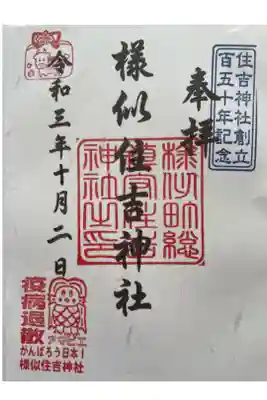 住吉神社創立
百五十年記念
奉拝
様似住吉神社
令和三年十月二日
様似町総
神社之印
アマビエ
疫病退散
がんばろう日本!
様似住吉神社